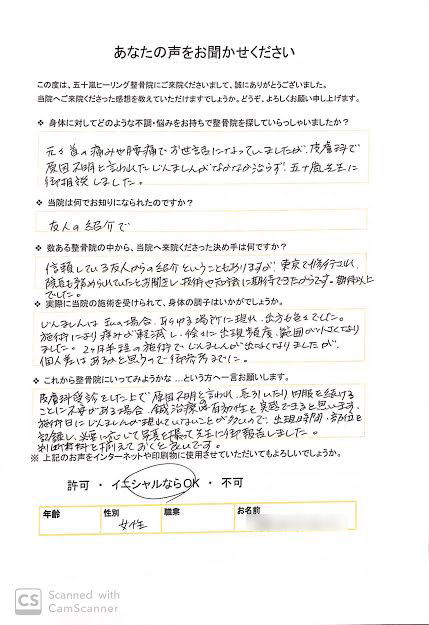 あなたの声をお聞かせください
この度は、五十嵐ヒーリング整骨院にご来院くださいまして、誠にありがとうございました。
当院へご来院くださった感想を教えていただけますでしょうか。どうぞ、よろしくお願い申し上げます。
❖ 身体に対してどのような不調・悩みをお持ちで整骨院を探していらっしゃいましたか？
元々首の痛みや腰痛でお世話になっていましたが、皮膚科で
原因不明と言われたじんましんがなかなか治らず、五十嵐先生に
御相談しました。
❖ 当院は何でお知りになられたのですか？
友人の紹介で
❖ 数ある整骨院の中から、当院へ来院くださった決め手は何ですか？
信頼している友人からの紹介ということもありますが、東京で修行され、
院長も務められていたとお聞きし、技術や知識に期待できたからです。期待以上
でした。
❖ 実際に当院の施術を受けられて、身体の調子はいかがでしょうか。
じんましんは私の場合、あらゆる場所に現れ、出方も色々でした。
施術により痛みが軽減し、徐々に出現頻度、範囲が小さくなり
ました。2ヶ月半程の施術でじんましんが出なくなりましたが、
個人差はあるかと思うので御参考までに。
❖ これから整骨院にいってみようかな …という方へ一言お願いします。
皮膚科受診をした上で原因不明と言われ、長引いたり内服を続ける
ことに不安がある場合、鍼治療の有効性を実感できると思います。
施術日にじんましんが現れていないことが多いので、出現時間・部位を
記録し、必要に応じて写真を撮って先生に御報告しました。
判断材料を揃えておくと良いです。
※ 上記のお声をインターネットや印刷物に使用させていただいてもよろしいでしょうか。
許可 ・ イニシャルならOK ・ 不可
年齢 性別 職業 お名前
女性
CS Scanned with
CamScanner